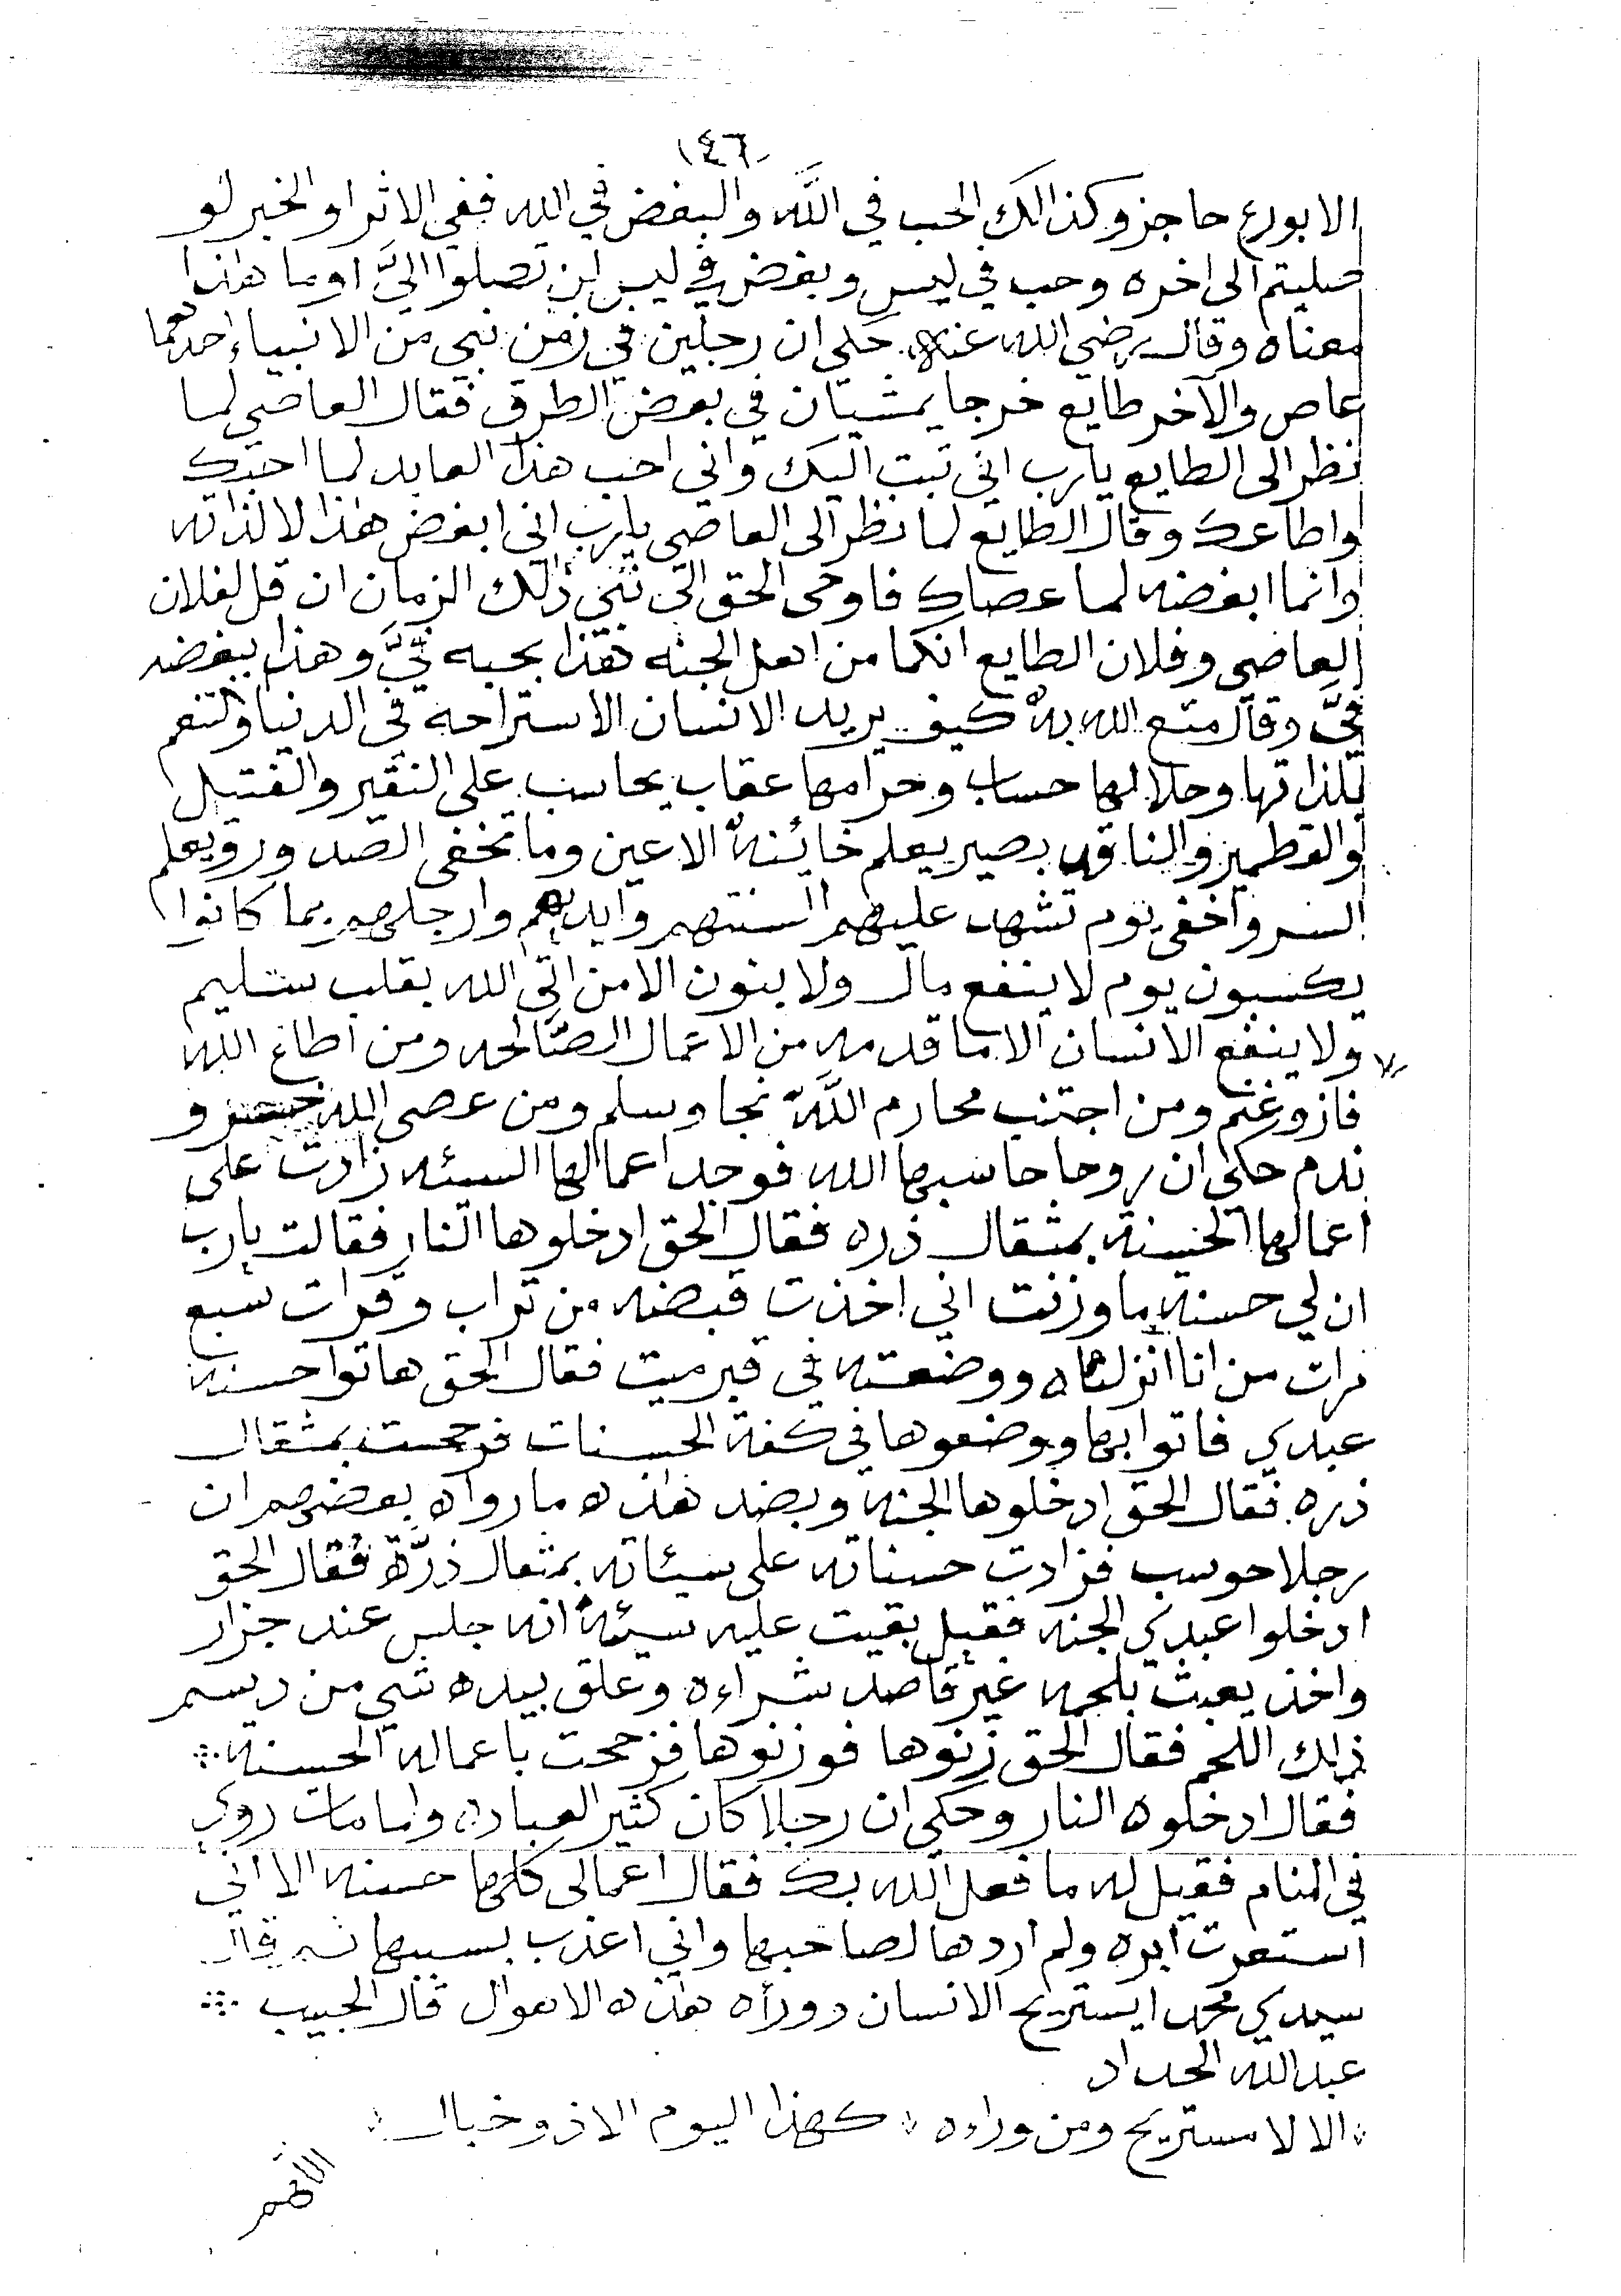 ١٤٦
الا بورع حاجز وكذالك الحب في اللَّه والبغض في الله ففي الاثر او الخبر لو
صليتم الى اخره وحب في ليس وبغض في ليس لن تصلوا اليَّ او ما هذا
معناه وقال رضي الله عنه حكى ان رجلين في زمن نبي من الانبياء احدهما
عاص والآخر طايع خرجا يمشيان في بعض الطرق فقال العاصي لما
نظر الى الطايع يارب اني تبت اليك واني احب هذا العابد لما احبك
واطاعك وقال الطايع لما نظر الى العاصي يارب اني ابغض هذا لا لذاته
وانما ابغضه لما عصاك فاوحى الحق الى نبي ذالك الزمان ان قل لفلان
العاصي وفلان الطايع انكما من اهل الجنه هذا بحبه فيَّ وهذا ببغضه
فيَّ وقال متع الله به كيف يريد الانسان الاستراحه في الدنيا والتنعم
بلذاتها وحلالها حساب وحرامها عقاب يحاسب على النقير والفتيل
والقطمير والناقد بصير يعلم خائنة الاعين وما تخفى الصدور ويعلم
السر واخفى يوم تشهد عليهم السنتهم وايديهم وارجلهم بما كانوا
يكسبون يوم لا ينفع مال ولا بنون الا من اتى الله بقلب سليم
ولا ينفع الانسان الا ما قدمه من الاعمال الصَّالحه ومن اطاع الله
فاز وغنم ومن اجتنب محارم اللَّه نجا وسلم ومن عصى الله خسر و
ندم حكى ان روحا حاسبها الله فوجد اعمالها السيئه زادت على
اعمالها الحسنة بمثقال ذره فقال الحق ادخلوها النار فقالت يارب
ان لي حسنة ما وزنت اني اخذت قبضه من تراب وقرات سبع
مرات من انا انزلناه ووضعته في قبر ميت فقال الحق هاتوا حسنة
عبدي فاتوا بها ووضعوها في كفة الحسنات فرجحت بمثقال
ذره فقال الحق ادخلوها الجنه وبضد هذه ما رواه بعضهم ان
رجلا حوسب فزادت حسناته على سيئاته بمثقال ذرَّة فقال الحق
ادخلوا عبدي الجنه فقيل بقيت عليه سيئة انه جلس عند جزار
واخذ يعبث بلحمه غير قاصد شراءه وعلق بيده شي من دسم
ذالك اللحم فقال الحق زنوها فوزنوها فرجحت باعماله الحسنة
فقال ادخلوه النار وحكي ان رجلا كان كثير العباده ولما مات روي
في المنام فقيل له ما فعل الله بك فقال اعمالى كلها حسنه الا اني
استعرت ابره ولم اردها لصاحبها واني اعذب بسببها ثم قال
سيدي محمد ايستريح الانسان وورأه هذه الاهوال قال الحبيب
عبد الله الحداد
الا لا مستريح ومن وراءه كهذا اليوم الا ذو خبال
اللهم